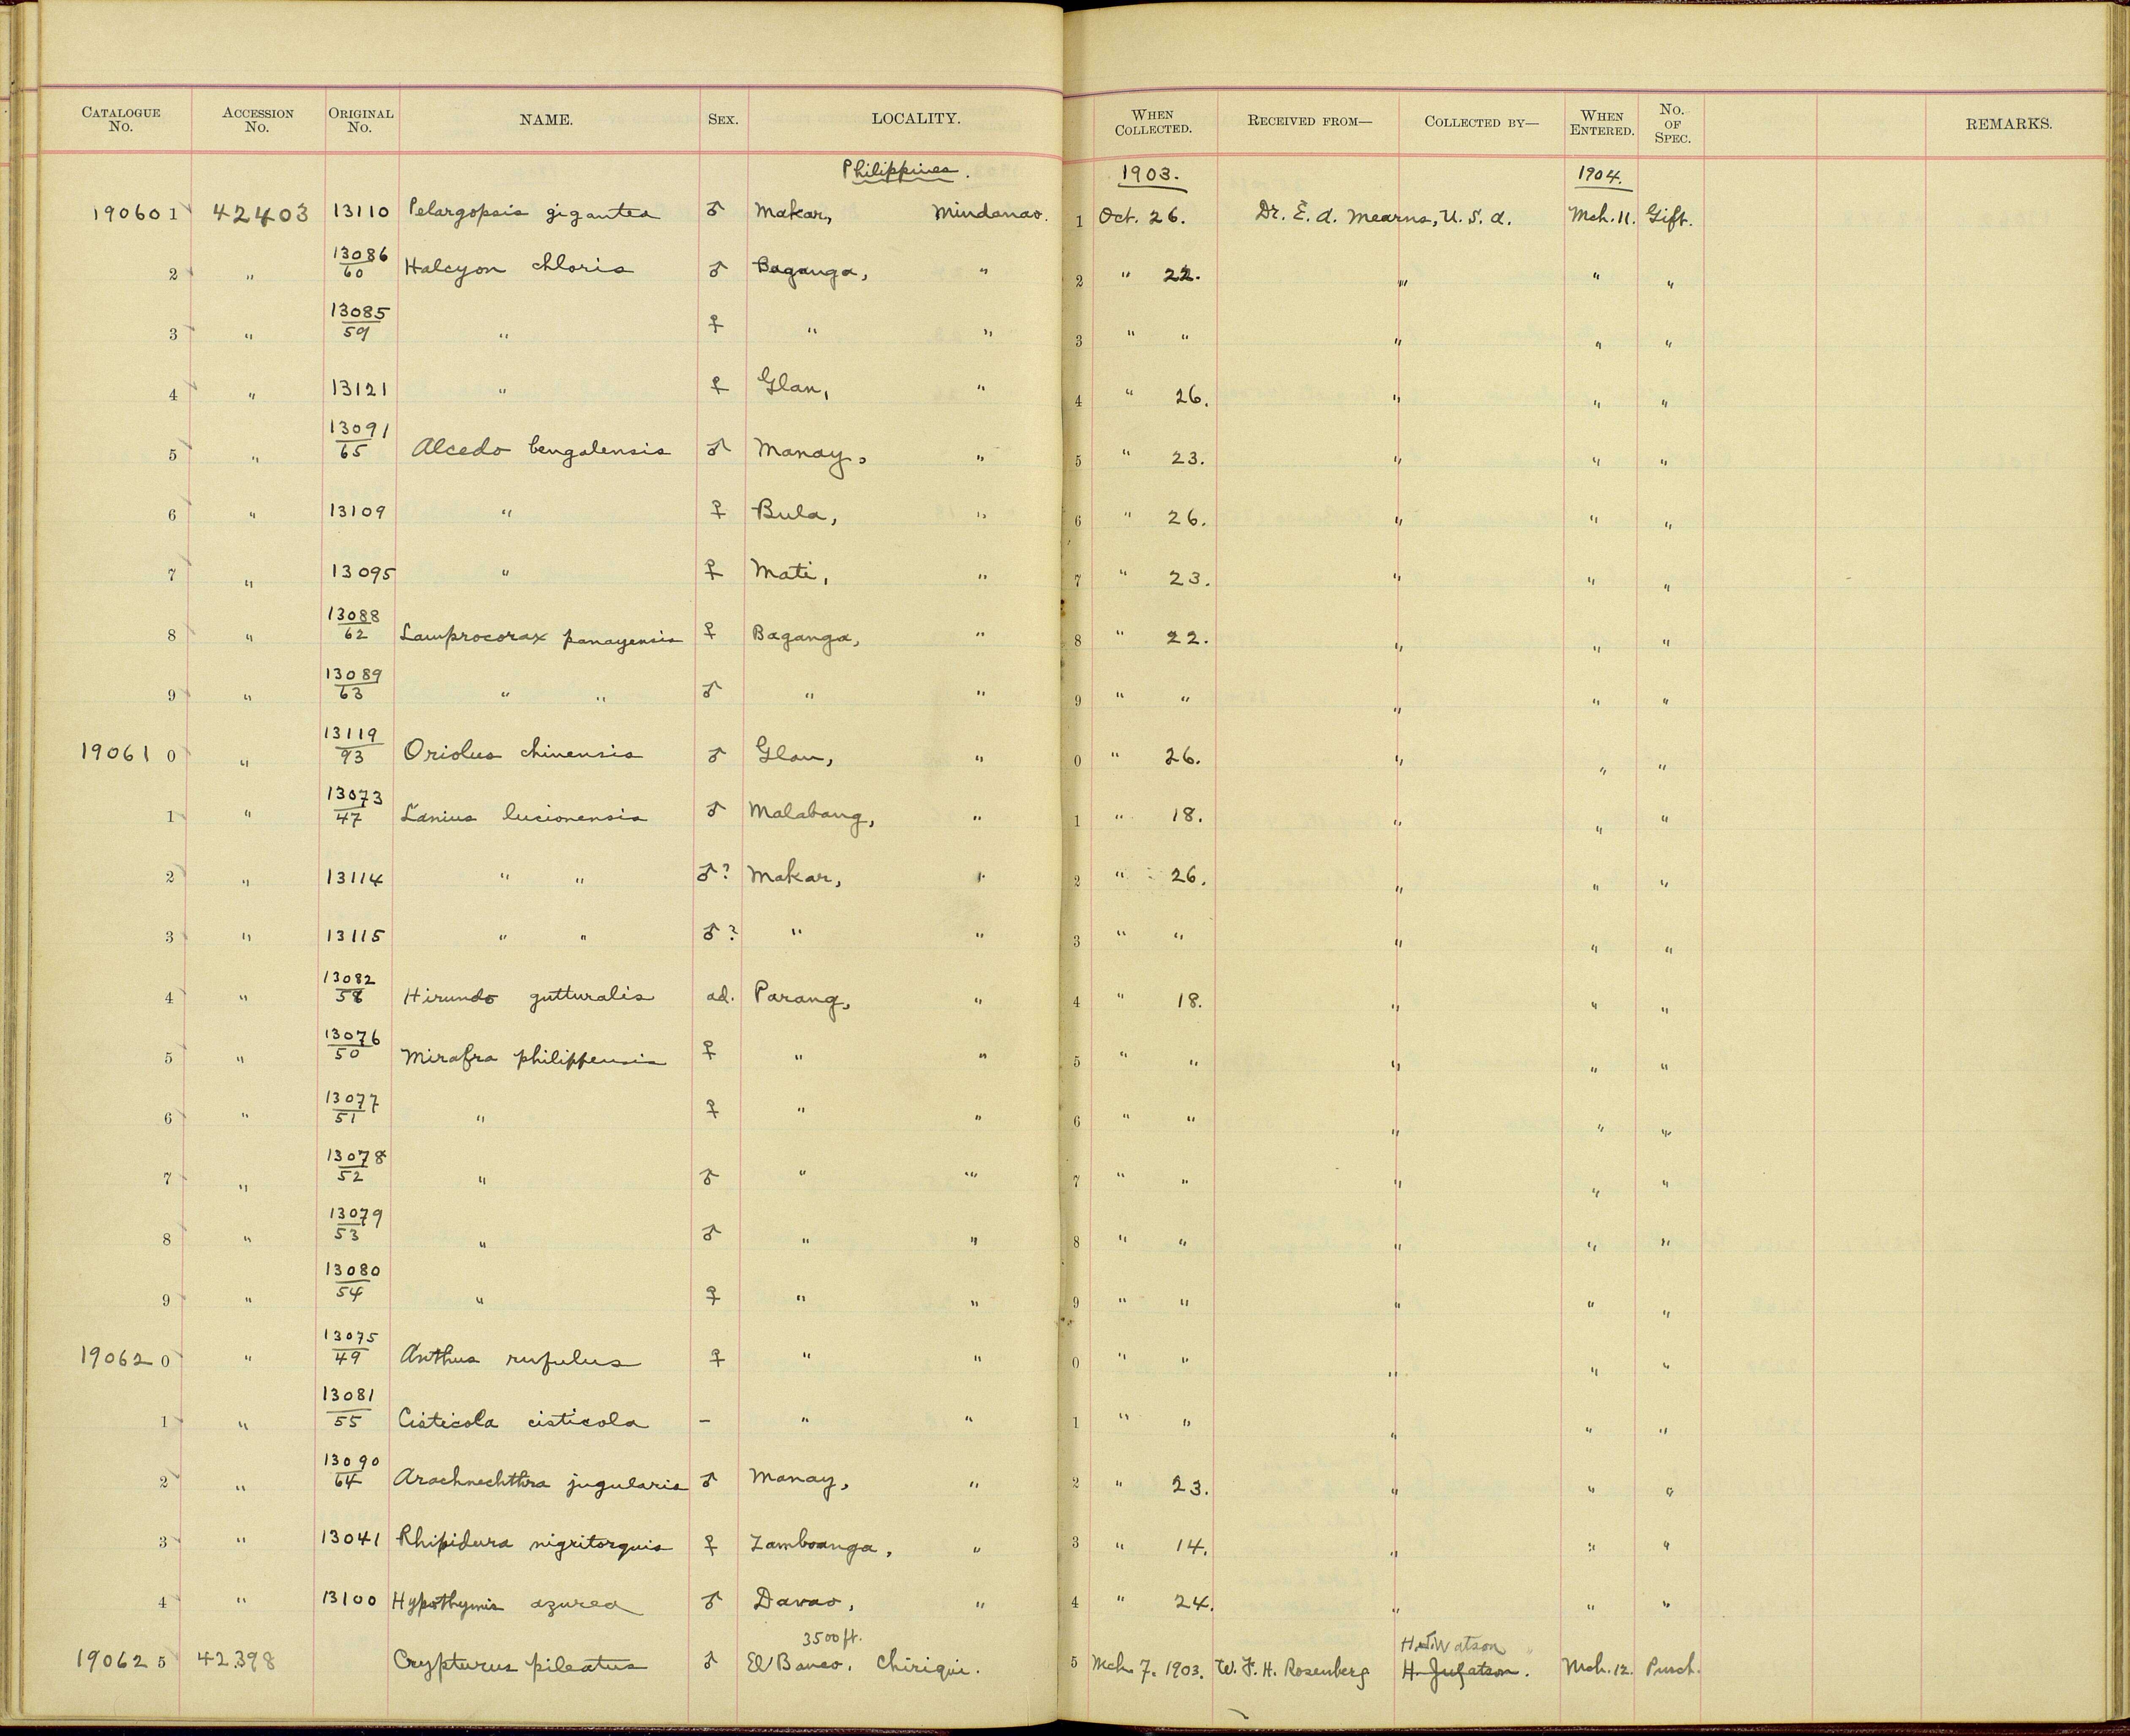 CATALOGUE No. ACCESSION No. ORIGINAL No. NAME. SEX. LOCALITY. WHEN COLLECTED. RECEIVED FROM— COLLECTED BY— WHEN ENTERED. No. OF SPEC. REMARKS.
Philippines. 1903. 1904.
190601 42403 13110 Pelargopsis gigantea ♂ Makar, Mindanao. 1 Oct. 26. Dr. E. A. Mearns, U. S. A. Mch. 11. Gift.
2 " 13086/60 Halcyon chloris ♂ Baganga, " 2 " 22. " " "
3 " 13085/59 " ♀ " " 3 " " " " "
4 " 13121 " ♀ Glan, " 4 " 26. " " "
5 " 13091/65 Alcedo bengalensis ♂ Manay, " 5 " 23. " " "
6 " 13109 " ♀ Bula, " 6 " 26. " " "
7 " 13095 " ♀ Mati, " 7 " 23. " " "
8 " 13088/62 Lamprocorax panayensis ♀ Baganga, " 8 " 22. " " "
9 " 13089/63 " " ♂ " " 9 " " " " "
190610 " 13119/93 Oriolus chinensis ♂ Glan, " 0 " 26. " " "
1 " 13073/47 Lanius lucionensis ♂ Malabang, " 1 " 18. " " "
2 " 13114 " " ♂? Makar, " 2 " 26. " " "
3 " 13115 " " ♂? " " 3 " " " " "
4 " 13082/58 Hirundo gutturalis ad. Parang, " 4 " 18. " " "
5 " 13076/50 Mirafra philippensis ♀ " " 5 " " " " "
6 " 13077/51 " ♀ " " 6 " " " " "
7 " 13078/52 " ♂ " " 7 " " " " "
8 " 13079/53 " ♂ " " 8 " " " " "
9 " 13080/54 " ♀ " " 9 " " " " "
190620 " 13075/49 Anthus rufulus ♀ " " 0 " " " " "
1 " 13081/55 Cisticola cisticola – " " 1 " " " " "
2 " 13090/64 Arachnechthra jugularis ♂ Manay, " 2 " 23. " " "
3 " 13041 Rhipidura nigritorquis ♀ Zamboanga, " 3 " 14. " " "
4 " 13100 Hypothymis azurea ♂ Davao, " 4 " 24. " " "
3500 ft. H. J. Watson
190625 42398 Crypturus pileatus ♂ El Banco, Chiriqui. 5 Mch. 7. 1903. W. F. H. Rosenberg Mch. 12. Purch.